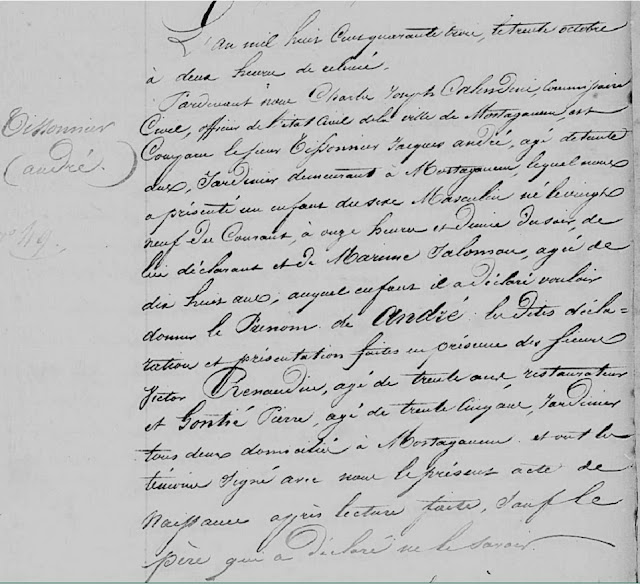 L'An mil huit Cent quarante trois, le trente octobre
à deux heures de relevée.
Pardevant nous Charles Joseph Commissaire
Civil, officier de l'état Civil de la ville de Mostaganem est
Comparu le sieur Tissonnier Jacques andré, agé de trente
ans, Jardinier demeurant à Mostaganem, lequel nous
a présenté un enfant du sexe Masculin né le vingt
neuf du Courant, à onze heures et demie du soir, de
lui déclarant et de Salomon, agée de
dix huit ans, auquel enfant il a déclaré vouloir
donner le Prénom de André. les dites décla=
ration et présentation faites en présence des sieurs
Victor Renaudin, agé de trente ans restaurateur
et Gontié Pierre, agé de trente Cinq ans, Jardinier
tous deux domicilié à Mostaganem et ont les
témoins signé avec nous le présent acte de
Naissance après lecture faite, Sauf le
père qui a déclaré ne le savoir.
Tissonnier
(andré.)
n° 49.